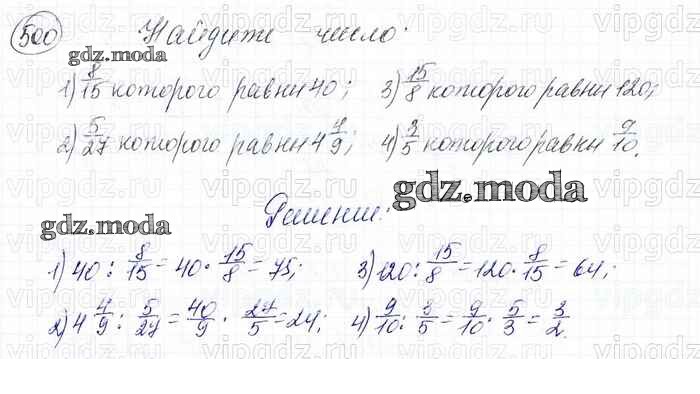 500 Найдите число:
gdz.moda
1) 8/15 которого равны 40; 3) 15/8 которого равны 120;
2) 5/27 которого равны 4 4/9; 4) 3/5 которого равны 9/10.
gdz.moda
gdz.moda
Решение:
1) 40 : 8/15 = 40 · 15/8 = 75; 3) 120 : 15/8 = 120 · 8/15 = 64;
2) 4 4/9 : 5/27 = 40/9 · 27/5 = 24; 4) 9/10 : 3/5 = 9/10 · 5/3 = 3/2.
vipgdz